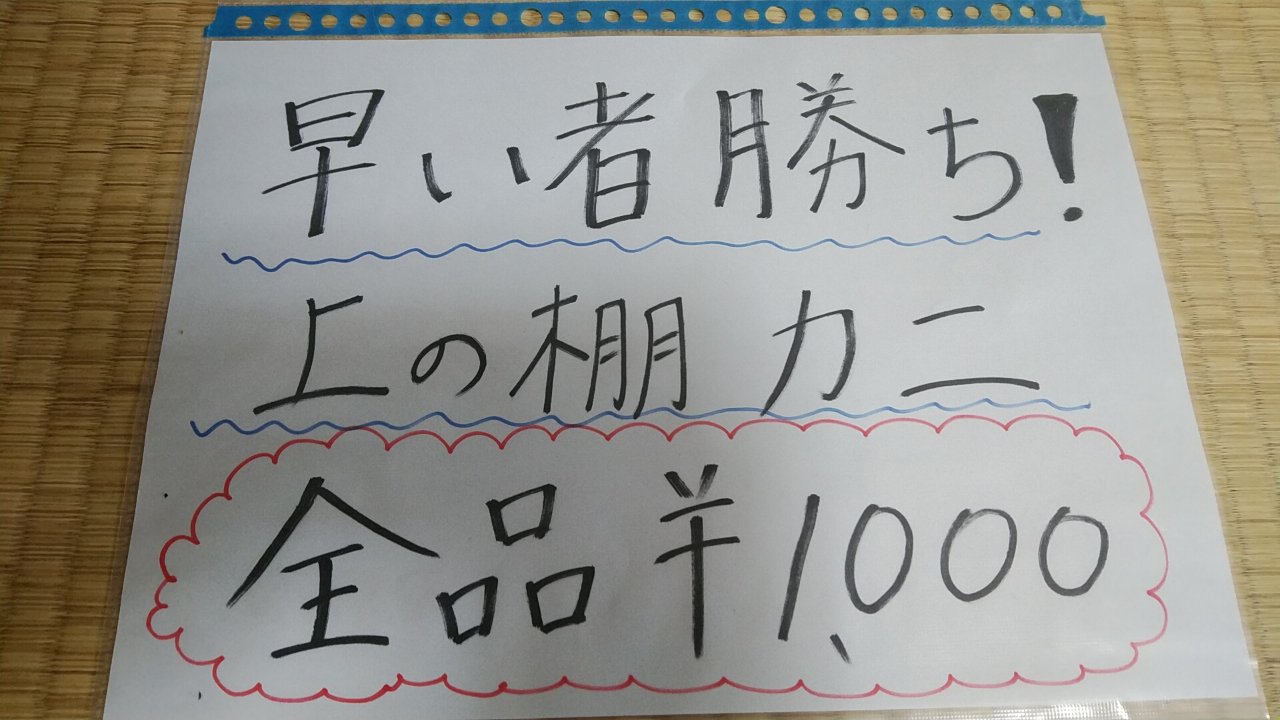 早い者勝ち!
上の棚 カニ
全品¥1,000